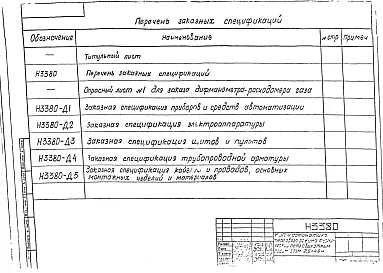 Перечень заказных спецификаций
Обозначение Наименование № стр Примеч
— Титульный лист
Н3380 Перечень заказных спецификаций
— Опросный лист №1 для заказа дифманометра-расходомера газа
Н3380-Д1 Заказная спецификация приборов и средств автоматизации
Н3380-Д2 Заказная спецификация электроаппаратуры
Н3380-Д3 Заказная спецификация щитов и пультов
Н3380-Д4 Заказная спецификация трубопроводной арматуры
Н3380-Д5 Заказная спецификация кабелей и проводов, основных
монтажных изделий и материалов
Н3380